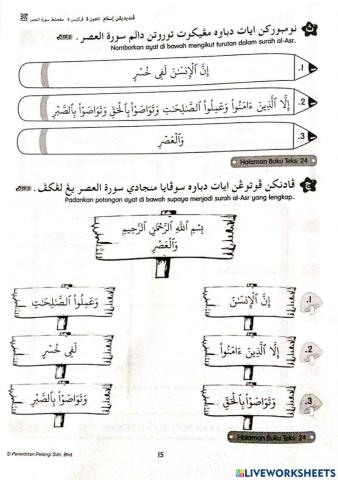 ڤنديديقن إسلام تاهون 3
نومبورکن ايات دباوه مڠيکوت توروتن دالم سورة العصر.
Nomborkan ayat di bawah mengikut turutan dalam surah al-Asr.
1. إِنَّ ٱلْإِنسَـٰنَ لَفِى خُسْرٍ
2. إِلَّا ٱلَّذِينَ ءَامَنُوا۟ وَعَمِلُوا۟ ٱلصَّـٰلِحَـٰتِ وَتَوَاصَوْا۟ بِٱلْحَقِّ وَتَوَاصَوْا۟ بِٱلصَّبْرِ
3. وَٱلْعَصْرِ
Halaman Buku Teks: 24
C
ڤادنکن ڤوتوڠن ايات دباوه سوڤايا منجادي سورة العصر يڠ لڠکڤ.
Padankan potongan ayat di bawah supaya menjadi surah al-Asr yang lengkap.
بِسْمِ ٱللَّهِ ٱلرَّحْمَـٰنِ ٱلرَّحِيمِ
وَٱلْعَصْرِ
1. إِنَّ ٱلْإِنسَـٰنَ
وَعَمِلُوا۟ ٱلصَّـٰلِحَـٰتِ
2. إِلَّا ٱلَّذِينَ ءَامَنُوا۟
لَفِى خُسْرٍ
3. وَتَوَاصَوْا۟ بِٱلْحَقِّ
وَتَوَاصَوْا۟ بِٱلصَّبْرِ
Halaman Buku Teks: 24
© Penerbitan Pelangi Sdn. Bhd.
15
LIVEWORKSHEETS